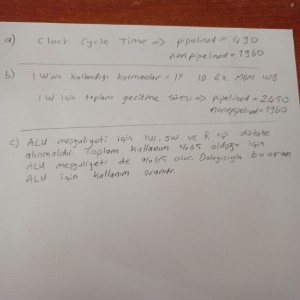 a) Clock Cycle Time => pipelined = 490
nonpipelined = 1960
b) lW'nin kullandığı katmanlar = IF ID EX MEM WB
lW için toplam gecikme süresi => pipelined = 2450
nonpipelined = 1960
c) ALU meşguliyeti için lw, sw ve R tip dikkate
alınmalıdır. Toplam kullanım %65 olduğu için
ALU meşguliyeti de %65 olur. Dolayısıyla bu oran
ALU için kullanım oranıdır.